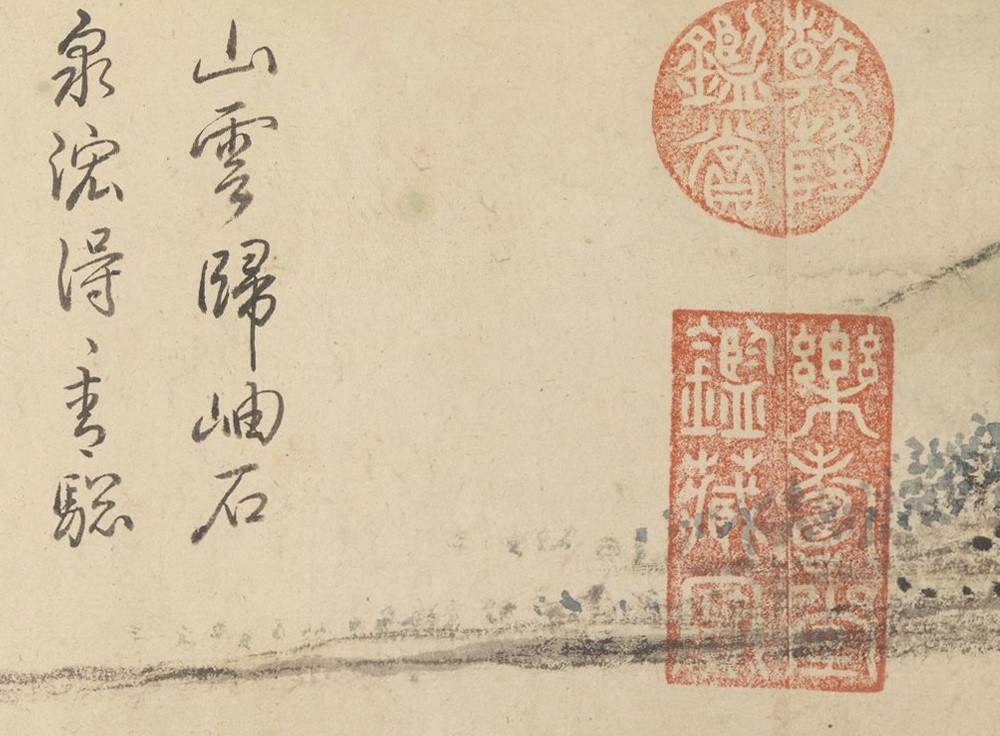 乾隆
鑑賞
樂壽堂
鑑藏寶
山雲歸岫石
泉得青驄